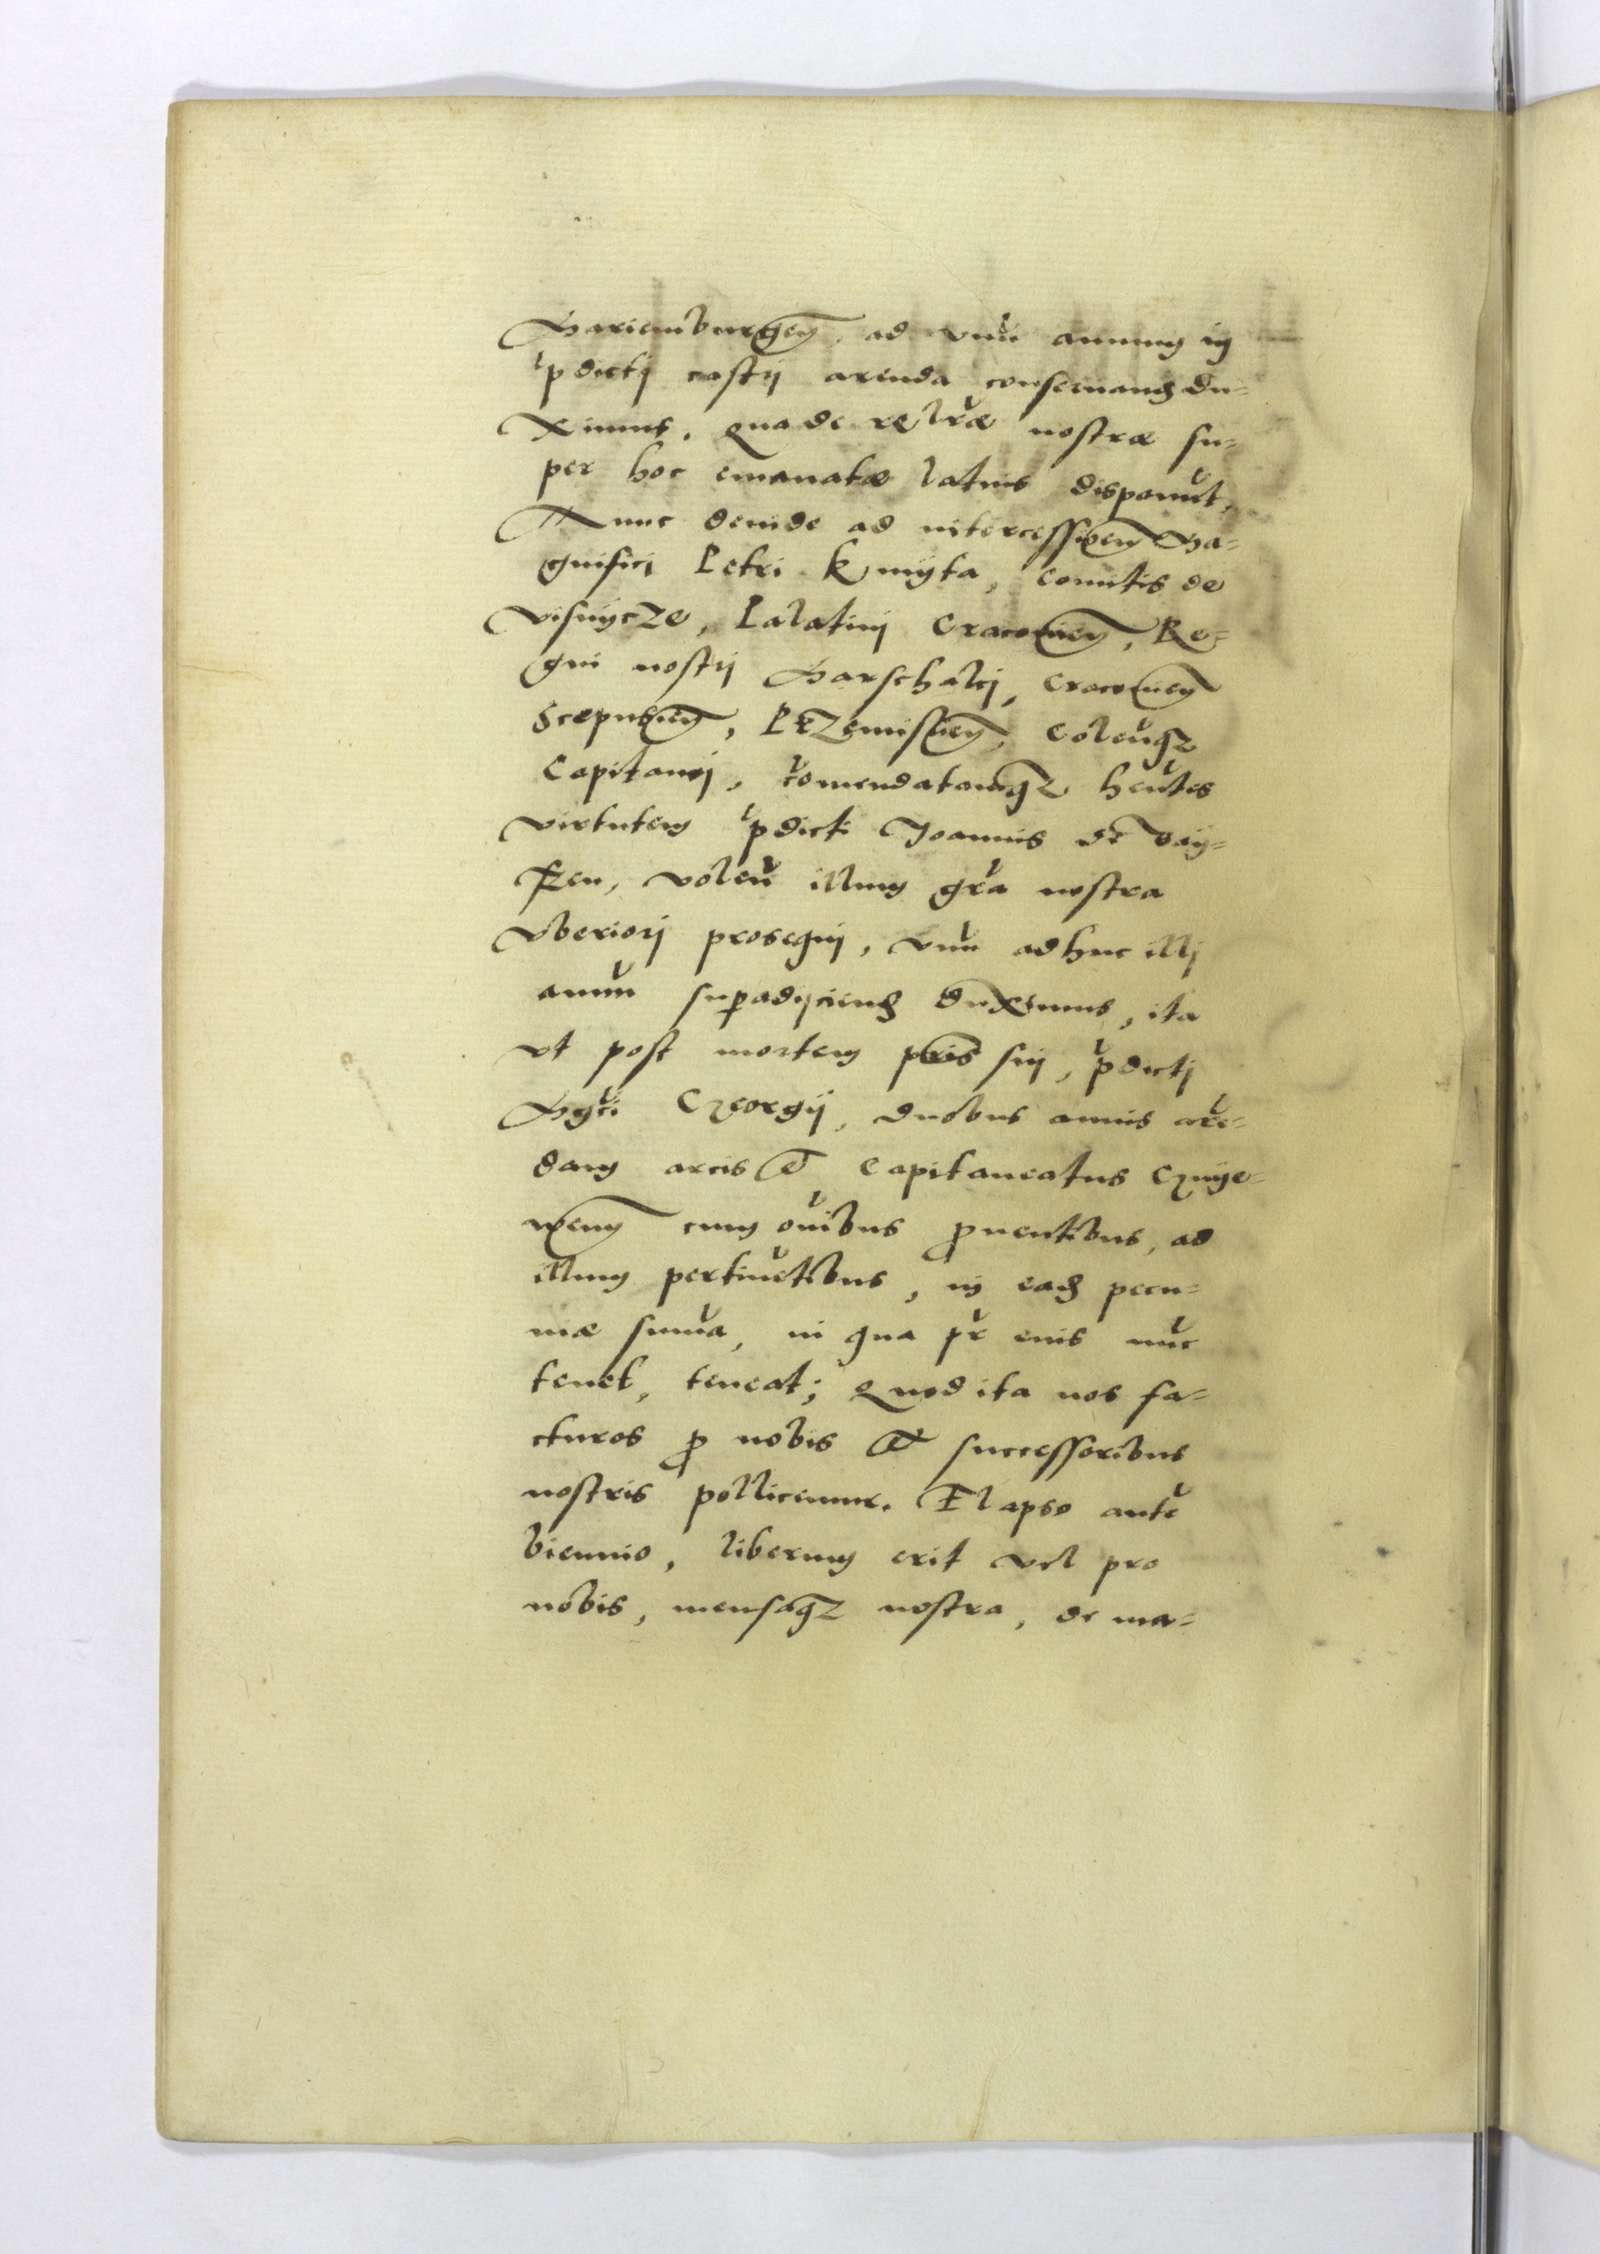 Mariemburgeñ, ad vnũ annum in
p̃dicti castri arenda conseruandũ du-
ximus, quade re lr̃æ nostræ su-
per hoc emanatæ latius disponũt,
Nunc deinde ad intercessionem Ma-
gnifici Petri Kmijta, Comitis de
Visnijcze, Palatini Cracovieñ, Re-
gni nostri Marschalci, Cracovieñ
Scepusieñ, Przemislieñ, Coleñqz
Capitanei, cõmendatamqz hẽntes
virtutem p̃dicti Joannis de Baij-
sen, volẽn illum grã nostra
vberiori prosequi, vnũ adhuc illi
annũ superadijciendũ duximus, ita
vt post mortem pr̃is sui, p̃dicti
Mgci Georgij, duobus annis arẽ-
dam arcis et Capitaneatus Gnije-
weñ cum oĩbus prouentibus, ad
illum pertinẽtibus, in eadẽ pecu-
niæ sum̃a, in qua pr̃ eius nũc
tenet, teneat; Quod ita nos fa-
cturos pro nobis et successoribus
nostris pollicemur. Elapso autẽ
biennio, liberum erit vel pro
nobis, mensaqz nostra, de ma-